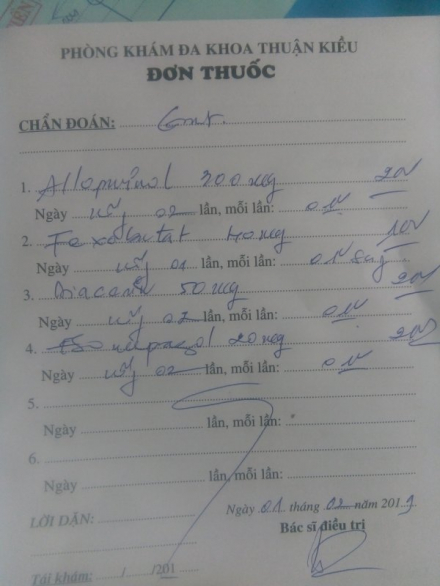 PHÒNG KHÁM ĐA KHOA THUẬN KIỀU
ĐƠN THUỐC
CHẨN ĐOÁN: Gout.
1. Allopurinol 300mg 20V
Ngày uống 02 lần, mỗi lần: 01V
2. Fexobutat 40mg 10V
Ngày uống 01 lần, mỗi lần: 01V sáng
3. Diacerin 50mg 20V
Ngày uống 02 lần, mỗi lần: 01V
4. Esomeprazol 20mg 20V
Ngày uống 02 lần, mỗi lần: 01V
5.
Ngày lần, mỗi lần:
6.
Ngày lần, mỗi lần:
Ngày 01 tháng 02 năm 2019
LỜI DẶN:
Bác sĩ điều trị
Tái khám: / /201